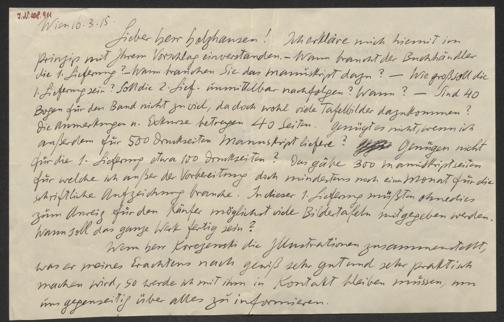 Wien 10.3.15.
Lieber Herr Holzhausen! Ich erkläre mich hiemit im
Prinzip mit Ihrem Vorschlag einverstanden. – Wann braucht der Buchhändler
die 1. Lieferung? – Wann brauchen Sie das Manuskript dazu? – Wie groß soll die
1. Lieferung sein? Soll die 2. Lief. unmittelbar nachfolgen? Wann? – Sind 40
Bogen für den Band nicht zu viel, da doch wohl viele Tafelbilder dazukommen?
Die Anmerkungen u. Exkurse betragen 40 Seiten. Genügt es nicht, wenn ich
außerdem für 500 Druckseiten Manuskript liefere? Genügen nicht
für die 1. Lieferung etwa 100 Druckseiten? Das gäbe 300 Manuskriptseiten
für welche ich außer der Vorbereitung doch mindestens noch ein Monat für die
schriftliche Aufzeichnung brauche. In dieser 1. Lieferung müßten ohnedies
zum Anreiz für den Käufer möglichst viele Bildertafeln mitgegeben werden.
Wann soll das ganze Werk fertig sein?
Wenn Herr die Illustrationen zusammenstellt,
was er meines Erachtens nach gewiß sehr gut und sehr praktisch
machen wird, so werde ich mit ihm in Kontakt bleiben müssen, um
uns gegenseitig über alles zu informieren.